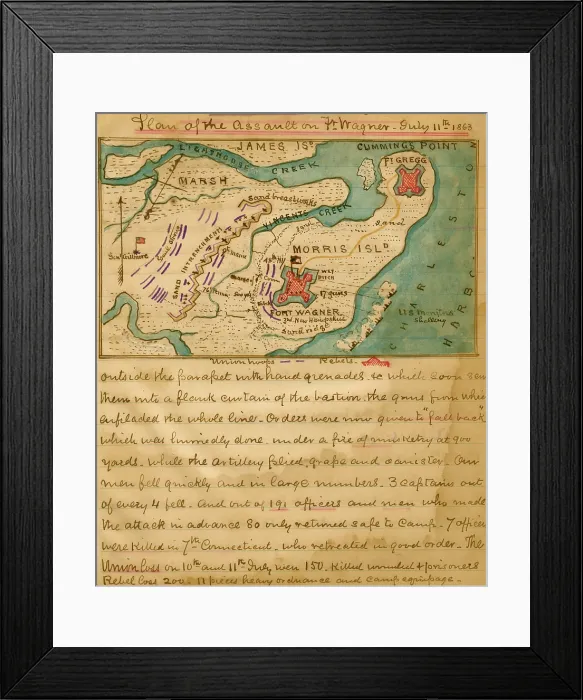 Plan of the Assault on Ft Wagner - July 11th 1863
LIGHTHOUSE CREEK
JAMES ISD
CUMMINGS POINT
FT GREGG
MARSH
Sand breastworks
VINCENTS CREEK
Sand
MORRIS ISLD
SAND INTRENCHMENT
WET DITCH
17 guns
FORT WAGNER
3rd New Hampshire
Sand ridge
US Monitors
Shelling
CHARLESTON HARBO
Union troops Rebels
outside the parapet with hand grenades &c which soon
them into a flank curtain of the bastion. the guns from whi
enfiladed the whole line - Orders were now given to "fall back"
which was hurriedly done. under a fire of musketry at 900
yards. while the artillery plied, grape and canister. Our
men fell quickly and in large numbers. 3 captains out
of every 4 fell. And out of 191 officers and men who made
the attack in advance 80 only returned safe to Camp. 7 office
were killed in 7th Connecticut. who retreated in good order. The
Union loss on 10th and 11th July were 150. Killed wounded & prisoners
Rebel loss 200. 11 pieces heavy ordnance and camp equipage.